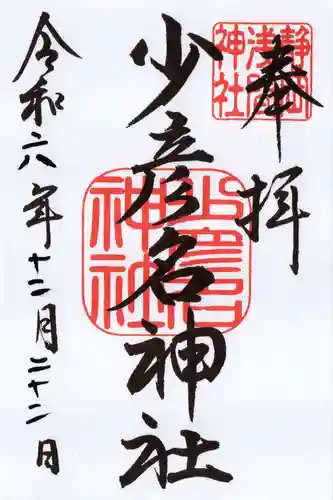 奉拝
静岡
浅間
神社
少彦名神社
少彦名
神社
令和六年十二月二十二日